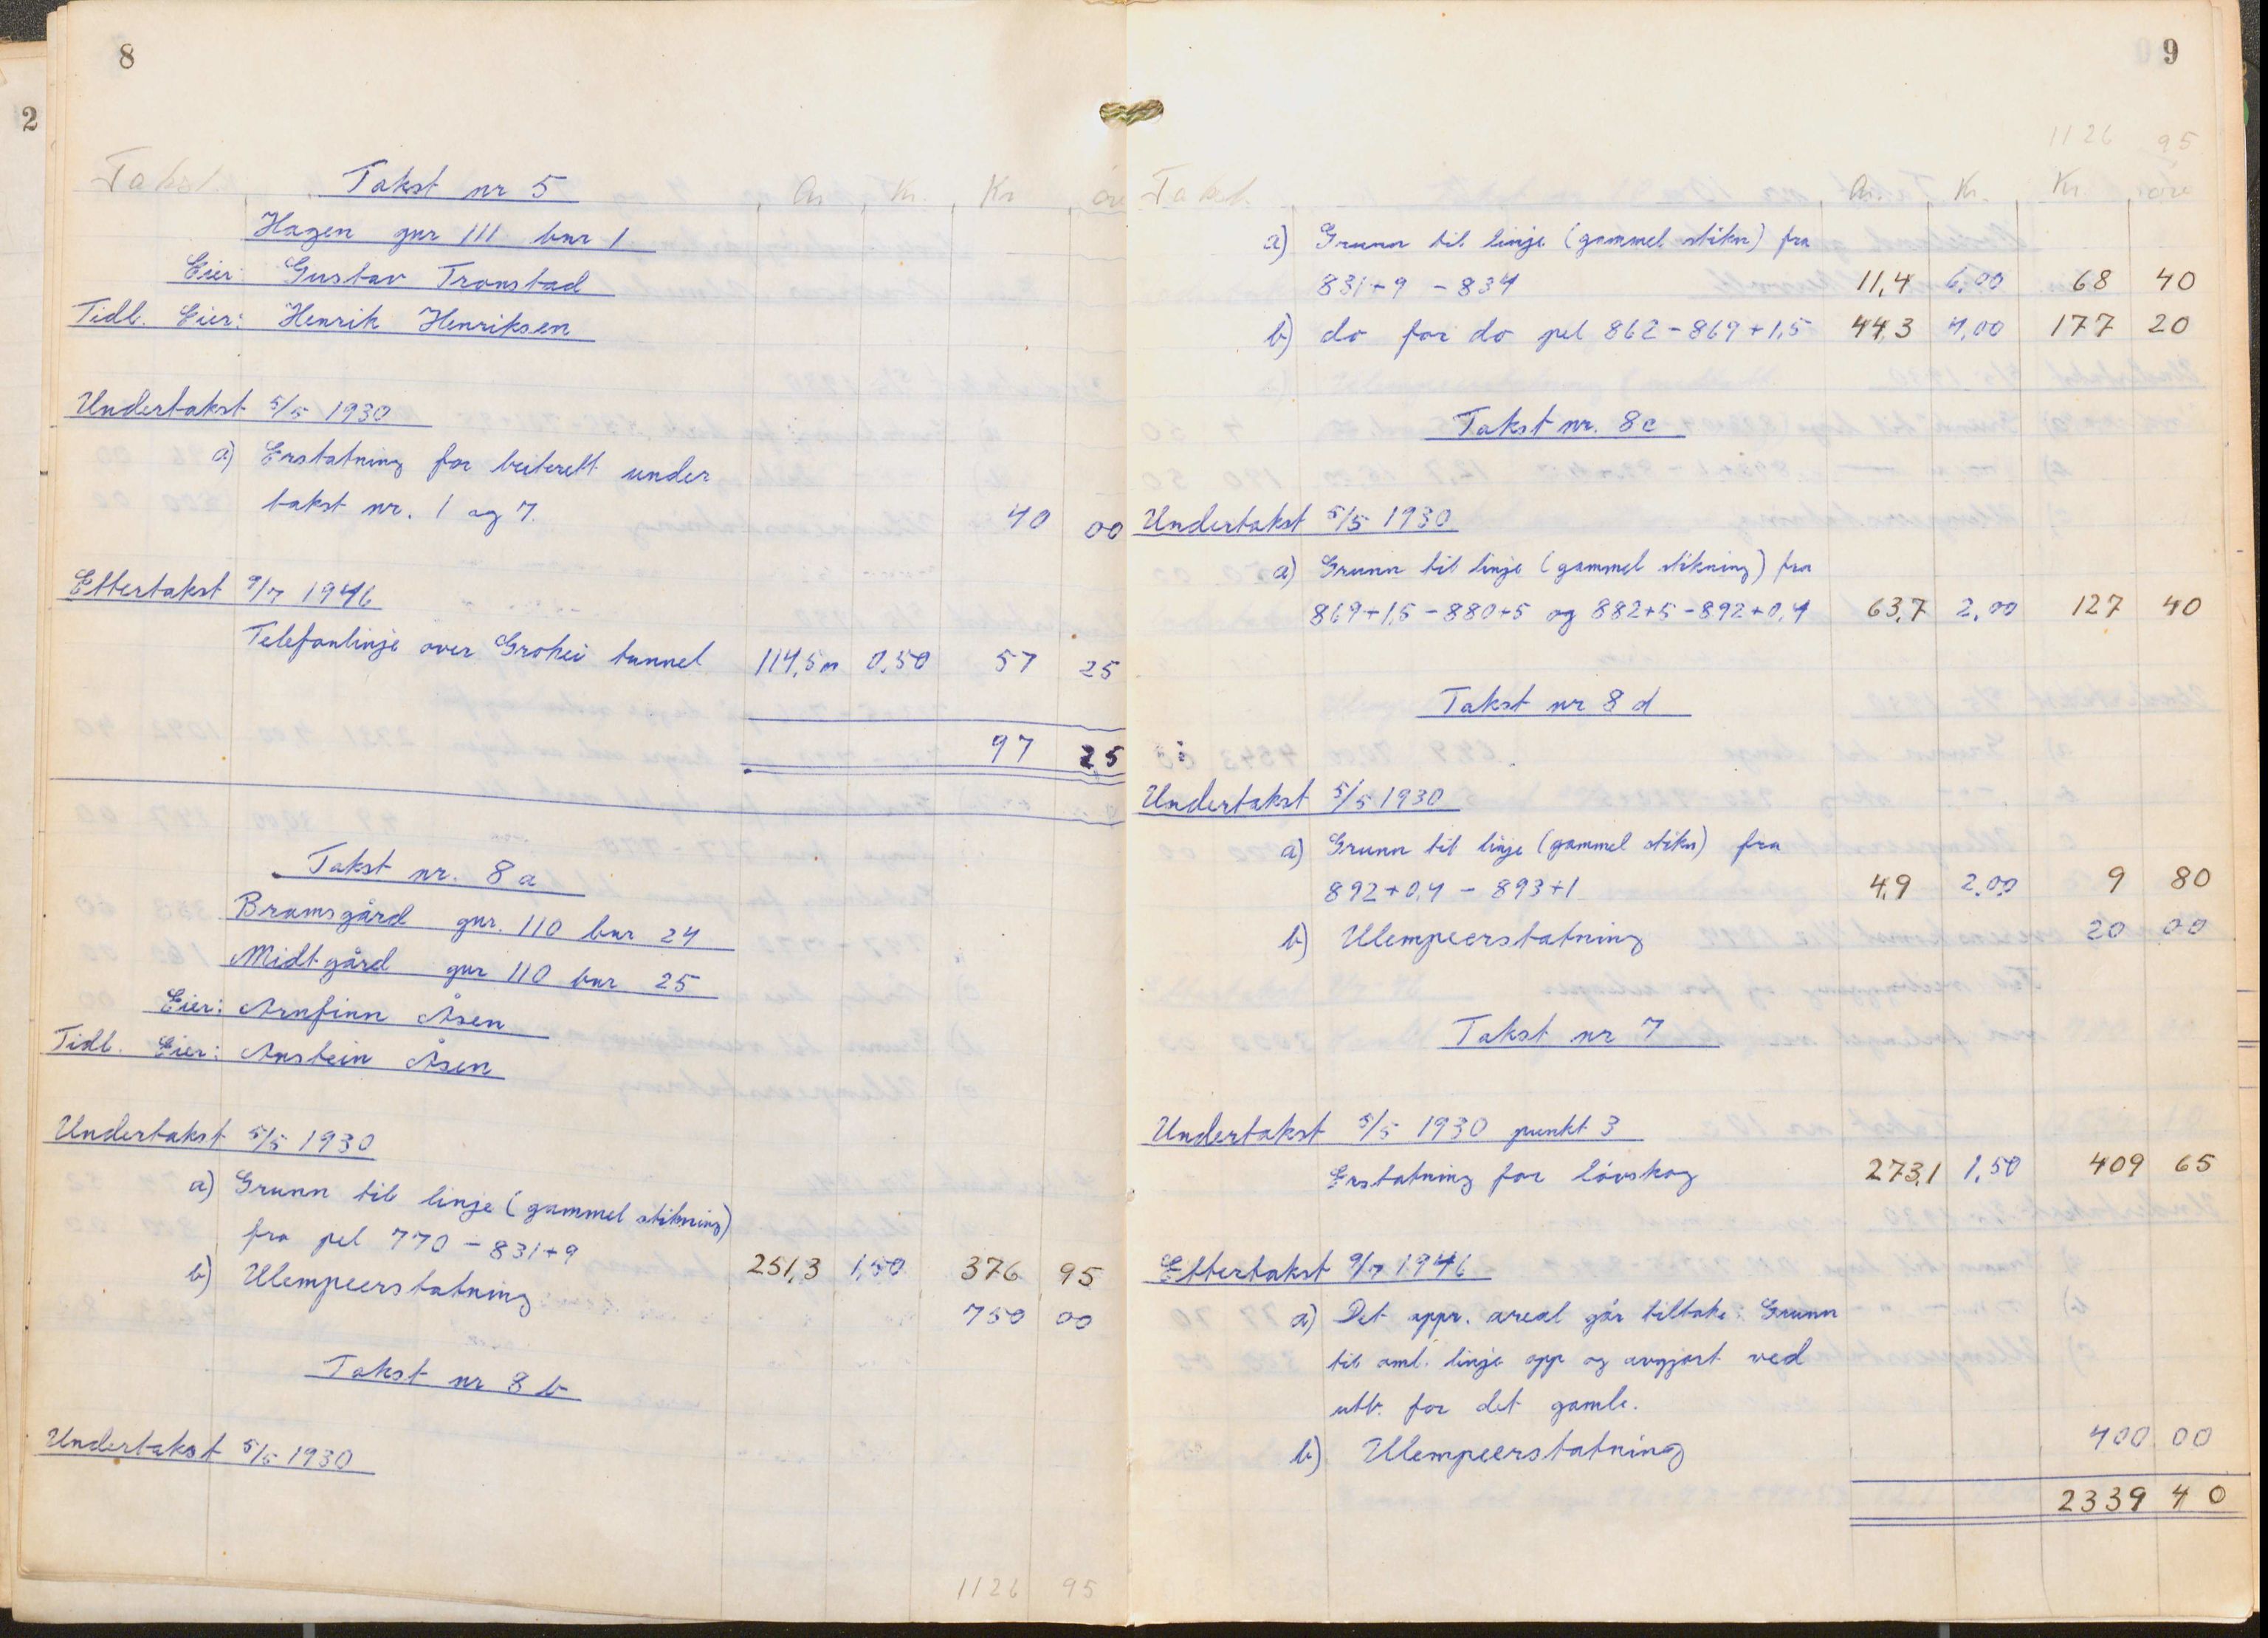 8
2
Takst.
Takst nr 5
Ar Kr. Kr øre
Hagen gnr 111 bnr 1
Eier: Gustav Tronstad
Tidl. Eier: Henrik Henriksen
Undertakst 5/5 1930
a) Erstatning for beiterett under
takst nr. 1 og 7. 40 00
Ettertakst 9/7 1946
Telefonlinje over Grohei tunnel 114,5m 0,50 57 25
97 25
Takst nr. 8 a
Bramsgård gnr. 110 bnr 24
Midtgård gnr 110 bnr 25
Eier: Arnfinn Åsen
Tidl. Eier: Anstein Åsen
Undertakst 5/5 1930
a) Grunn til linje (gammel stikning)
fra pel 770 - 831+9 251,3 1,50 376 95
b) Ulempeerstatning 750 00
Takst nr 8 b
Undertakst 5/5 1930
1126 95
9
1126 95
Takst. Ar. Kr. Kr øre
a) Grunn til linje (gammel stikn) fra
831+9 - 834 11,4 6,00 68 40
b) do for do pel 862 - 869 + 1,5 44,3 4,00 177 20
Takst nr. 8c
Undertakst 5/5 1930
a) Grunn til linje (gammel stikning) fra
869+1,5 - 880+5 og 882+5 - 892+0,4 63,7 2,00 127 40
Takst nr 8 d
Undertakst 5/5 1930
a) Grunn til linje (gammel stikn) fra
892+0,4 - 893+1 4,9 2,00 9 80
b) Ulempeerstatning 20 00
Takst nr 7
Undertakst 5/5 1930 punkt 3
Erstatning for løvskog 273,1 1,50 409 65
Ettertakst 9/7 1946
a) Det oppr. areal går tilbake: Grunn
til oml. linje opp og avgjort ved
utb. for det gamle.
b) Ulempeerstatning 400 00
2339 40